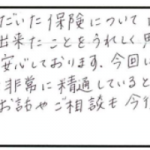 だいた保険について
出来たことをうれしく思
安心しております。今回
非常に精通していると
お話やご相談も今